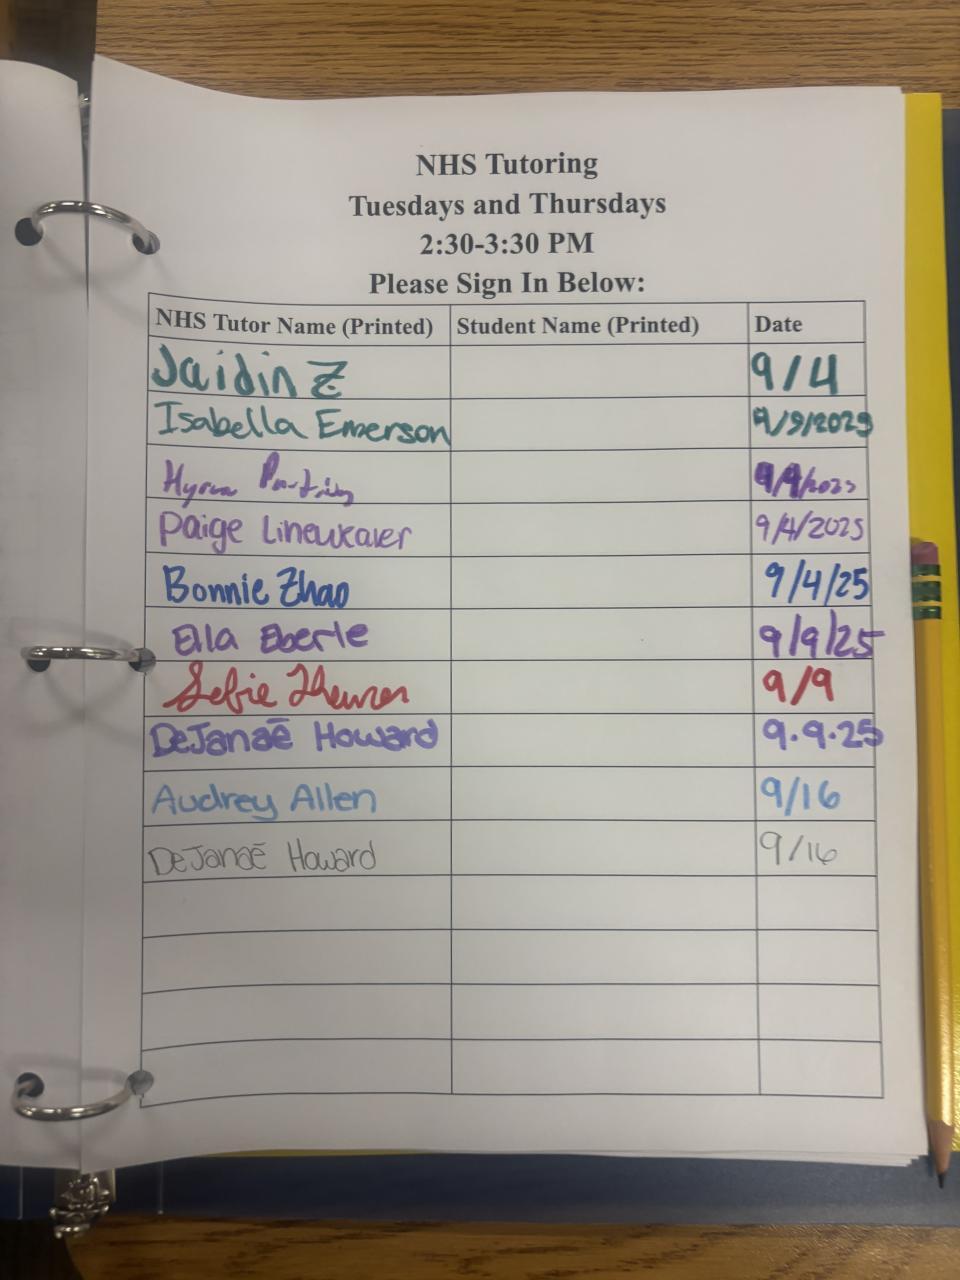 NHS Tutoring
Tuesdays and Thursdays
2:30-3:30 PM
Please Sign In Below:
NHS Tutor Name (Printed) Student Name (Printed) Date
Jaidin Z 9/4
Isabella Emerson
9/4/2025
Bonnie Zhao 9/4/25
Ella Eberle 9/9/25
9/9
DeJanaē Howard 9.9.25
Audrey Allen 9/16
DeJanaē Howard 9/16